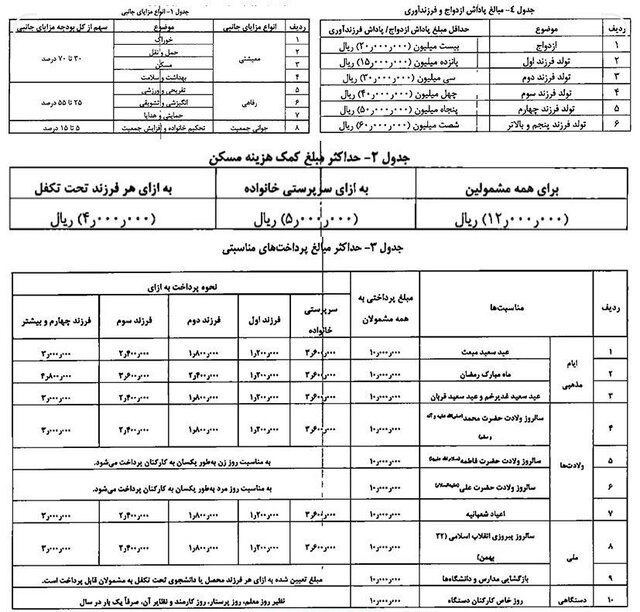 جدول ۴- مبالغ پاداش ازدواج و فرزندآوری
ردیف	موضوع	حداقل مبلغ پاداش ازدواج/ پاداش فرزندآوری
۱	ازدواج	بیست میلیون (۲۰٫۰۰۰٫۰۰۰) ریال
۲	تولد فرزند اول	پانزده میلیون (۱۵٫۰۰۰٫۰۰۰) ریال
۳	تولد فرزند دوم	سی میلیون (۳۰٫۰۰۰٫۰۰۰) ریال
۴	تولد فرزند سوم	چهل میلیون (۴۰٫۰۰۰٫۰۰۰) ریال
۵	تولد فرزند چهارم	پنجاه میلیون (۵۰٫۰۰۰٫۰۰۰) ریال
۶	تولد فرزند پنجم و بالاتر	شصت میلیون (۶۰٫۰۰۰٫۰۰۰) ریال
جدول ۱- انواع مزایای جانبی
ردیف	انواع مزایای جانبی	سهم از کل بودجه مزایای جانبی
۱	خوراک	معیشتی	۳۰ تا ۷۰ درصد
۲	حمل و نقل
۳	مسکن
۴	بهداشت و سلامت
۵	تفریحی و ورزشی	رفاهی	۲۵ تا ۵۵ درصد
۶	انگیزشی و تشویقی
۷	حمایتی و هدایا
۸	تحکیم خانواده و افزایش جمعیت	جوانی جمعیت	۵ تا ۱۵ درصد
جدول ۲- حداکثر مبلغ کمک هزینه مسکن
برای همه مشمولین	به ازای سرپرستی خانواده	به ازای هر فرزند تحت تکفل
(۱۲٫۰۰۰٫۰۰۰) ریال	(۵٫۰۰۰٫۰۰۰) ریال	(۴٫۰۰۰٫۰۰۰) ریال
جدول ۳- حداکثر مبالغ پرداخت‌های مناسبتی
ردیف	مناسبت‌ها	مبلغ پرداختی به همه مشمولان	نحوه پرداخت به ازای
سرپرستی خانواده	فرزند اول	فرزند دوم	فرزند سوم	فرزند چهارم و بیشتر
ایام مذهبی
۱	عید سعید مبعث	۱۰٫۰۰۰٫۰۰۰	۳٫۶۰۰٫۰۰۰	۱٫۲۰۰٫۰۰۰	۱٫۸۰۰٫۰۰۰	۲٫۴۰۰٫۰۰۰	۳٫۰۰۰٫۰۰۰
۲	ماه مبارک رمضان	۱۰٫۰۰۰٫۰۰۰	۳٫۶۰۰٫۰۰۰	۱٫۲۰۰٫۰۰۰	۲٫۴۰۰٫۰۰۰	۳٫۶۰۰٫۰۰۰	۴٫۸۰۰٫۰۰۰
۳	عید سعید غدیرخم و عید سعید قربان	۱۰٫۰۰۰٫۰۰۰	۳٫۶۰۰٫۰۰۰	۱٫۲۰۰٫۰۰۰	۱٫۸۰۰٫۰۰۰	۲٫۴۰۰٫۰۰۰	۳٫۰۰۰٫۰۰۰
ولادت‌ها
۴	سالروز ولادت حضرت محمد(صلی‌الله علیه و آله و سلم)	۱۰٫۰۰۰٫۰۰۰	۳٫۶۰۰٫۰۰۰	۱٫۲۰۰٫۰۰۰	۱٫۸۰۰٫۰۰۰	۲٫۴۰۰٫۰۰۰	۳٫۰۰۰٫۰۰۰
۵	سالروز ولادت حضرت فاطمه(سلام‌الله علیها)	۱۰٫۰۰۰٫۰۰۰	به مناسبت روز زن به‌طور یکسان به کارکنان پرداخت می‌شود.
۶	سالروز ولادت حضرت علی(علیه‌السلام)	۱۰٫۰۰۰٫۰۰۰	به مناسبت روز مرد به‌طور یکسان به کارکنان پرداخت می‌شود.
۷	اعیاد شعبانیه	۱۰٫۰۰۰٫۰۰۰	۳٫۶۰۰٫۰۰۰	۱٫۲۰۰٫۰۰۰	۱٫۸۰۰٫۰۰۰	۲٫۴۰۰٫۰۰۰	۳٫۰۰۰٫۰۰۰
ملی
۸	سالروز پیروزی انقلاب اسلامی (۲۲ بهمن)	۱۰٫۰۰۰٫۰۰۰	۳٫۶۰۰٫۰۰۰	۱٫۲۰۰٫۰۰۰	۱٫۸۰۰٫۰۰۰	۲٫۴۰۰٫۰۰۰	۳٫۰۰۰٫۰۰۰
۹	بازگشایی مدارس و دانشگاه‌ها	۱۰٫۰۰۰٫۰۰۰	مبلغ تعیین شده به ازای هر فرزند محصل یا دانشجوی تحت تکفل به مشمولان قابل پرداخت است.
دستگاهی
۱۰	روز خاص کارکنان دستگاه	۱۰٫۰۰۰٫۰۰۰	نظیر روز معلم، روز پرستار، روز کارمند و نظایر آن، صرفاً یک بار در سال